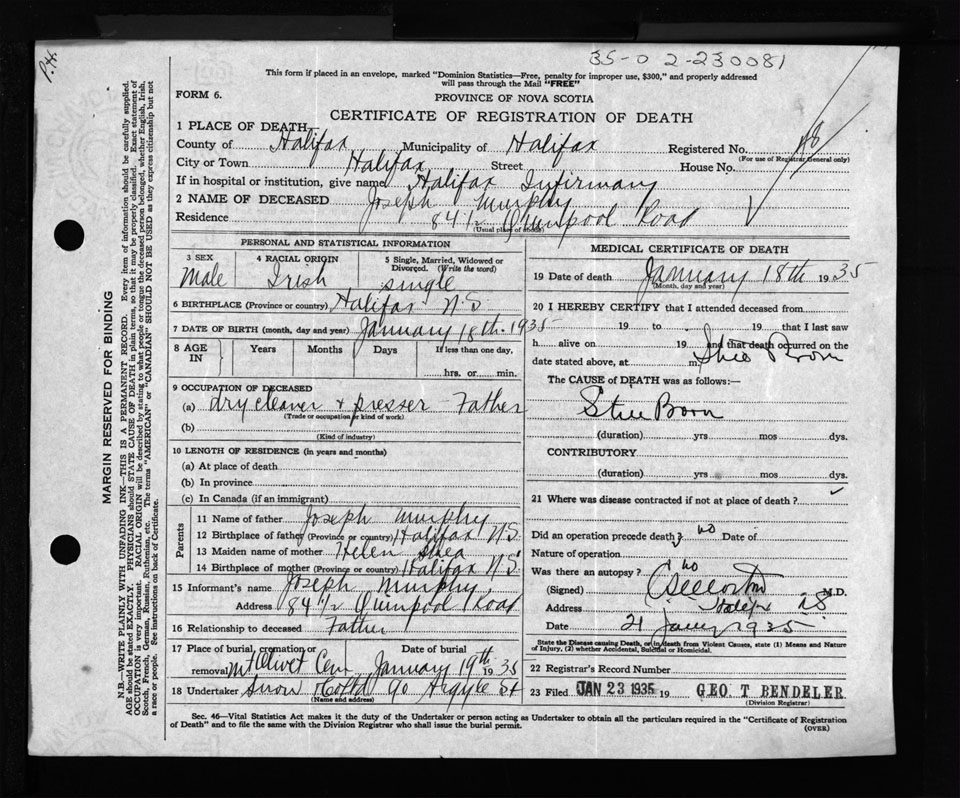 P.H.
35-0 2-230081
This form if placed in an envelope, marked "Dominion Statistics—Free, penalty for improper use, $300," and properly addressed
will pass through the Mail "FREE"
FORM 6.
PROVINCE OF NOVA SCOTIA
CERTIFICATE OF REGISTRATION OF DEATH
1 PLACE OF DEATH
County of Halifax Municipality of Halifax Registered No. 18
(For use of Registrar General only)
City or Town Halifax Street House No.
If in hospital or institution, give name Halifax Infirmary
2 NAME OF DECEASED Joseph Murphy
Residence 84 1/2 Quinpool Road
(Usual place of abode)
PERSONAL AND STATISTICAL INFORMATION
3 SEX 4 RACIAL ORIGIN 5 Single, Married, Widowed or
Divorced. (Write the word)
Male Irish single
6 BIRTHPLACE (Province or country) Halifax N.S
7 DATE OF BIRTH (month, day and year) January 18th. 1935
8 AGE IN Years Months Days If less than one day,
hrs. or min.
9 OCCUPATION OF DECEASED
(a) dry cleaner + presser - Father
(Trade or occupation or kind of work)
(b)
(Kind of industry)
10 LENGTH OF RESIDENCE (in years and months)
(a) At place of death
(b) In province
(c) In Canada (if an immigrant)
Parents
11 Name of father Joseph Murphy
12 Birthplace of father (Province or country) Halifax N.S.
13 Maiden name of mother Helen Shea
14 Birthplace of mother (Province or country) Halifax N.S.
15 Informant's name Joseph Murphy
Address 84 1/2 Quinpool Road
16 Relationship to deceased Father
17 Place of burial, cremation or Date of burial
removal Mt Olivet Cem January 19th 1935
18 Undertaker Snow & Co Ltd 90 Argyle St
(Name and address)
MEDICAL CERTIFICATE OF DEATH
19 Date of death January 18th 1935
(Month, day and year)
20 I HEREBY CERTIFY that I attended deceased from
19 to 19 that I last saw
h alive on 19 and that death occurred on the
date stated above, at m. Still Born
The CAUSE of DEATH was as follows:—
Still Born
(duration) yrs mos dys.
CONTRIBUTORY
(duration) yrs mos dys.
21 Where was disease contracted if not at place of death?
Did an operation precede death? no Date of
Nature of operation
Was there an autopsy? no
(Signed) M.D.
Address Halifax N.S
Date 21 Jany 1935
State the Disease causing Death, or in death from Violent Causes, state (1) Means and Nature
of Injury, (2) whether Accidental, Suicidal or Homicidal.
22 Registrar's Record Number
23 Filed JAN 23 1935 19 GEO. T BENDELER
(Division Registrar)
Sec. 46—Vital Statistics Act makes it the duty of the Undertaker or person acting as Undertaker to obtain all the particulars required in the "Certificate of Registration
of Death" and to file the same with the Division Registrar who shall issue the burial permit.
(OVER)
MARGIN RESERVED FOR BINDING
N.B.—WRITE PLAINLY WITH UNFADING INK—THIS IS A PERMANENT RECORD. Every item of information should be carefully supplied.
AGE should be stated EXACTLY. PHYSICIANS should STATE CAUSE OF DEATH in plain terms, so that it may be properly classified. Exact statement of
OCCUPATION is very important. RACIAL ORIGIN will be described by stating to what people or tongue the deceased person belonged, whether English, Irish,
Scotch, French, German, Russian, Ruthenian, etc. The terms "AMERICAN" or "CANADIAN" SHOULD NOT BE USED as they express citizenship but not
a race or people. See instructions on back of Certificate.